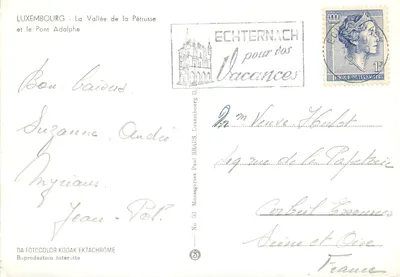 LUXEMBOURG - La Vallée de la Pétrusse
et le Pont Adolphe
ECHTERNACH
pour vos
Vacances
Bon baisers
Suzanne André
Myriam
Jean-
Mme Veuve
rue de la Papeterie
Corbeil Essonnes
Seine et Oise
France
Messageries Paul KRAUS, Luxembourg
DA FOTOCOLOR KODAK EKTACHROME
Reproduction interdite